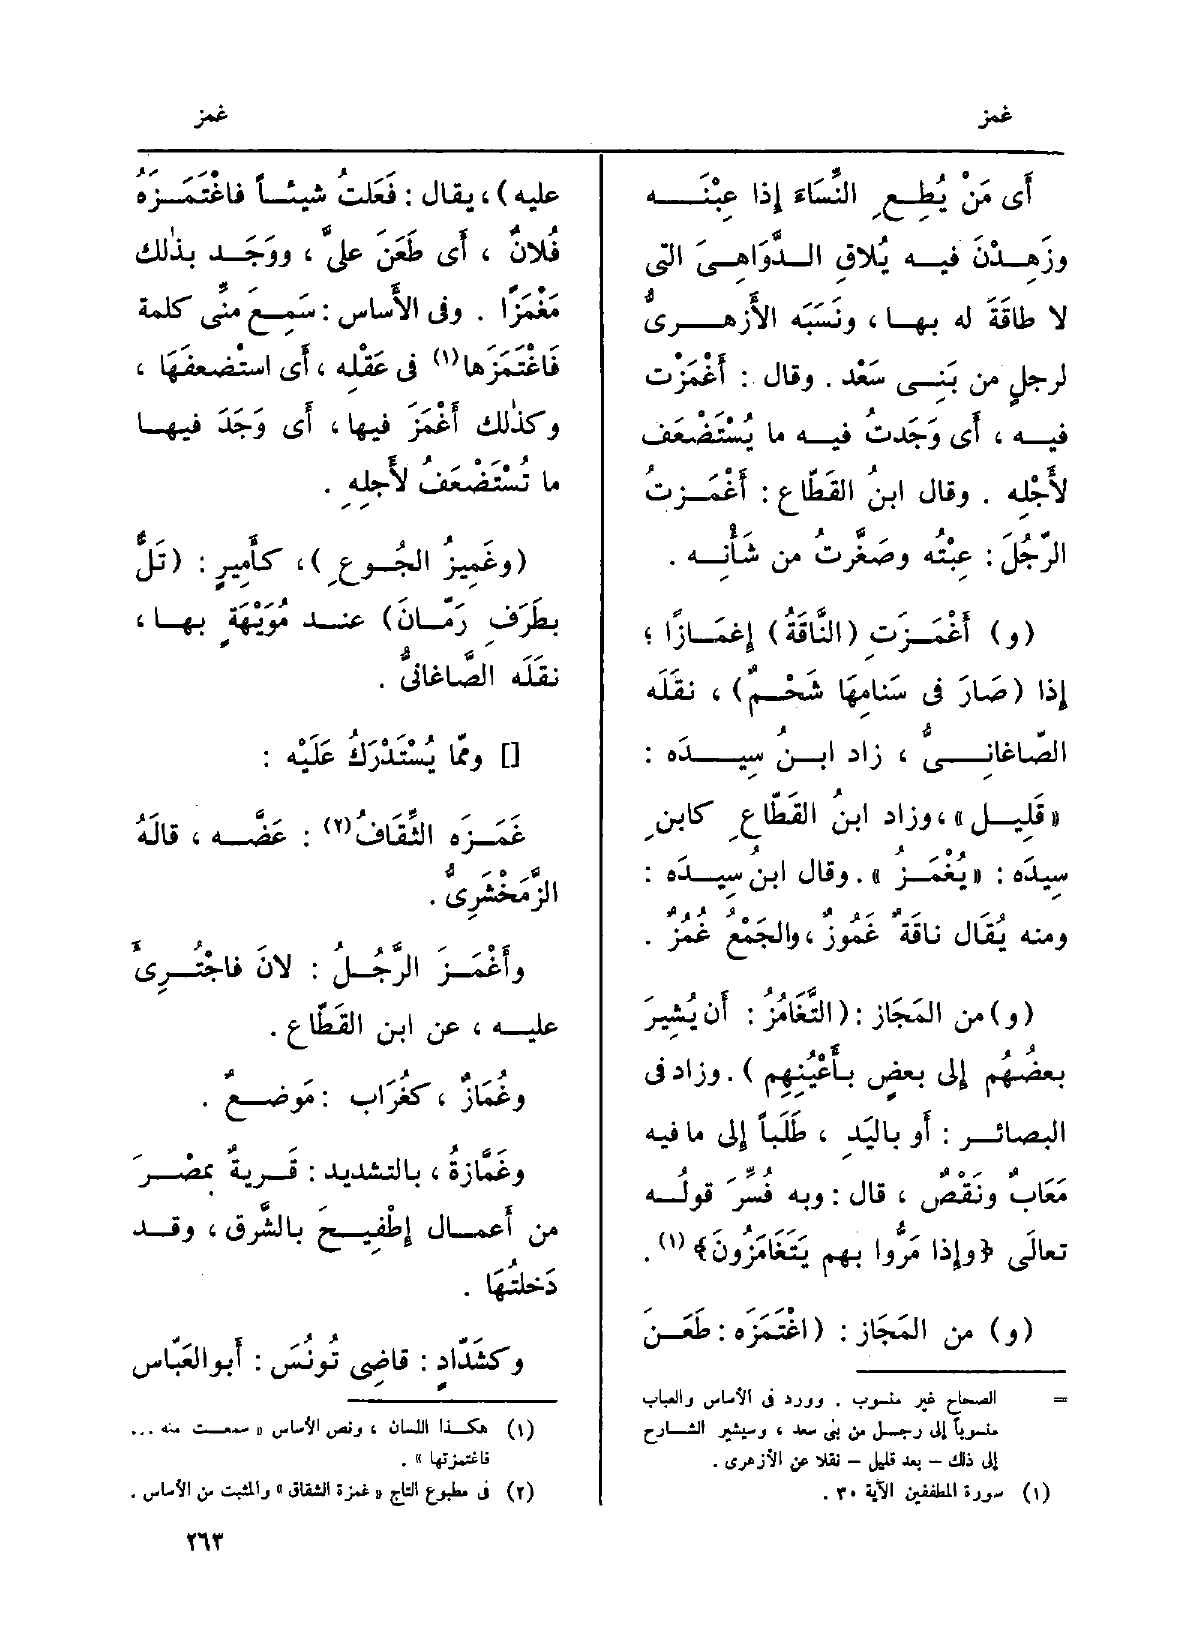 غمز
غمز
أَى مَنْ يُطِعِ النِّسَاءَ إذا عِبْنَــه
وزَهِدْنَ فيه يُلاقِ الدَّوَاهِىَ التى
لا طاقَةَ له بها، ونَسَبَه الأَزهرىُّ
لرجلٍ من بَنِى سَعْد . وقال : أَغْمَزْت
فيه ، أَى وَجَدتُ فيه ما يُسْتَضْعَف
لأَجْلِه . وقال ابنُ القَطَّاع : أَغْمَزتُ
الرّجُلَ : عِبْتُه وصَغَّرتُ من شَأْنِه .
(و) أَغْمَزَتِ (النَّاقَةُ) إغمَازًا ؛
إذا (صَارَ فى سَنامِهَا شَحْمٌ) ، نقَلَه
الصّاغانِىُّ ، زاد ابنُ سِيدَه :
«قَلِيل»، وزاد ابنُ القَطَّاعِ كابنِ
سِيدَه : «يُغْمَزُ» . وقال ابنُ سِيدَه :
ومنه يُقَال ناقَةٌ غَمُوزٌ، والجَمْعُ غُمُزٌ .
(و) من المَجَاز : (التَّغَامُزُ : أن يُشِيرَ
بعضُهُم إلى بعضٍ بأَعْيُنِهِم ) . وزاد فى
البصائر : أو باليَدِ ، طَلَباً إلى ما فيه
مَعَابٌ ونَقْصٌ ، قال : وبه فُسِّرَ قولُه
تعالَى {وإذا مَرُّوا بهم يَتَغَامَزُونَ} (١) .
(و) من المَجَاز : (اغْتَمَزَه : طَعَنَ
= الصحاح غير منسوب . وورد فى الأساس والعباب
منسوباً إلى رجل من بنى سعد ، وسيشير الشارح
إلى ذلك – بعد قليل – نقلا عن الأزهرى .
(١) سورة المطففين الآية ٣٠ .
عليه) ، يقال : فَعَلتُ شيئاً فاغْتَمَزَهُ
فُلانٌ ، أَى طَعَنَ علىَّ ، ووَجَد بذٰلك
مَغْمَزًا . وفى الأَساس : سَمِعَ منِّى كلمة
فَاغْتَمَزَها(١) فى عَقْلِه ، أَى استْضعفَهَا ،
وكذٰلك أَغْمَزَ فيها، أَى وَجَدَ فيها
ما تُسْتَضْعَفُ لأَجلِهِ .
(وغَمِيزُ الجُوعِ)، كأَمِيرٍ : (تَلٌّ
بطَرَفِ رَمّانَ) عند مُوَيْهَةٍ بها ،
نقَلَه الصَّاغانىُّ .
[] وممّا يُسْتَدْرَكُ عَلَيْه :
غَمَزَه الثِّقَافُ(٢) : عَضَّه ، قالَهُ
الزَّمَخْشَرِىُّ .
وأَغْمَزَ الرَّجُلُ : لانَ فاجْتُرِىَٔ
عليه ، عن ابن القَطّاع .
وغُمَازٌ ، كغُرَاب : مَوضعٌ .
وغَمَّازةُ ، بالتشديد : قَريةٌ بمصْرَ
من أَعمال إطْفِيحَ بالشَّرق ، وقد
دَخلتُهَا .
وكشَدّادٍ : قاضِى تُونُسَ : أَبو العَبّاس
(١) هكذا اللسان ، ونص الأساس «سمعت منه ...
فاغتمزتها» .
(٢) فى مطبوع التاج «غمزة الشقاق» والمثبت من الأساس .
٢٦٣